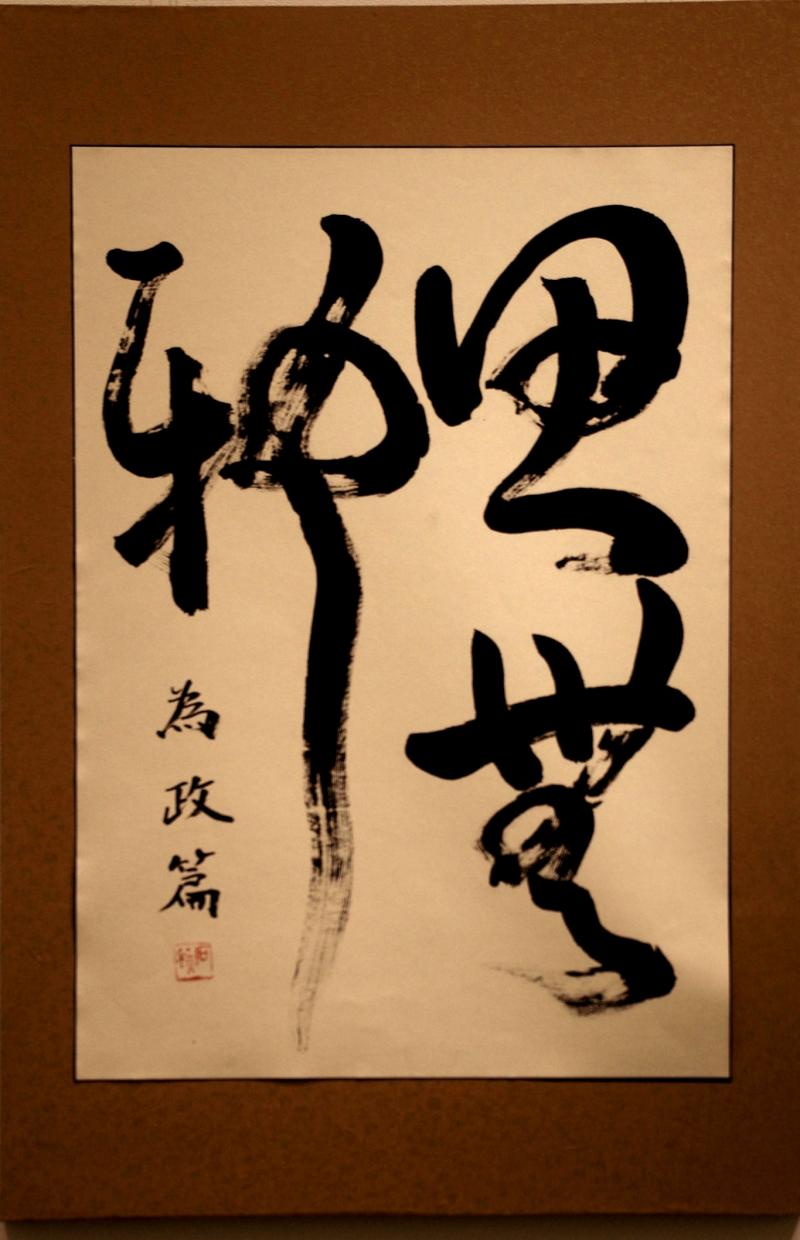 思無
邪
為政篇